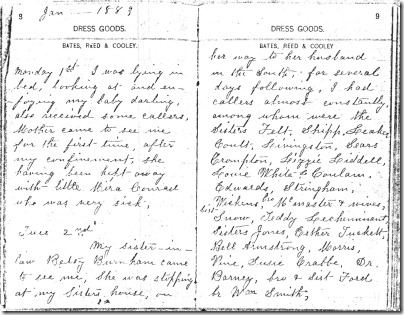 Jan — 1889
8
DRESS GOODS.
BATES, REED & COOLEY.
Monday 1st I was lying in
bed, looking at and en-
joying my baby darling,
also received some callers,
Mother came to see me
for the first time, after
my confinement, she
having been kept away
with little Mira Conrad
who was very sick,
Tues 2nd
My sister-in-
law Betsy Burnham came
to see me, She was stopping
at my Sisters, house, on
9
DRESS GOODS.
BATES, REED & COOLEY.
her way to her husband
in the South, for several
days following, I had
callers almost constantly,
among whom were the
Sisters Felt, Shipp, Leaker
Coult, Livingston, Sears
Crompton, Lizzie Liddell,
Louie White
Edwards, Stringham,
McMaster & wives,
Sist Snow, Teddy
Sisters Jones, Esther Tuckett,
Bell Armstrong, Morris,
Pine, Susie Crabbe, Dr.
Barney, bro & Sist Ford
br Wm Smith,